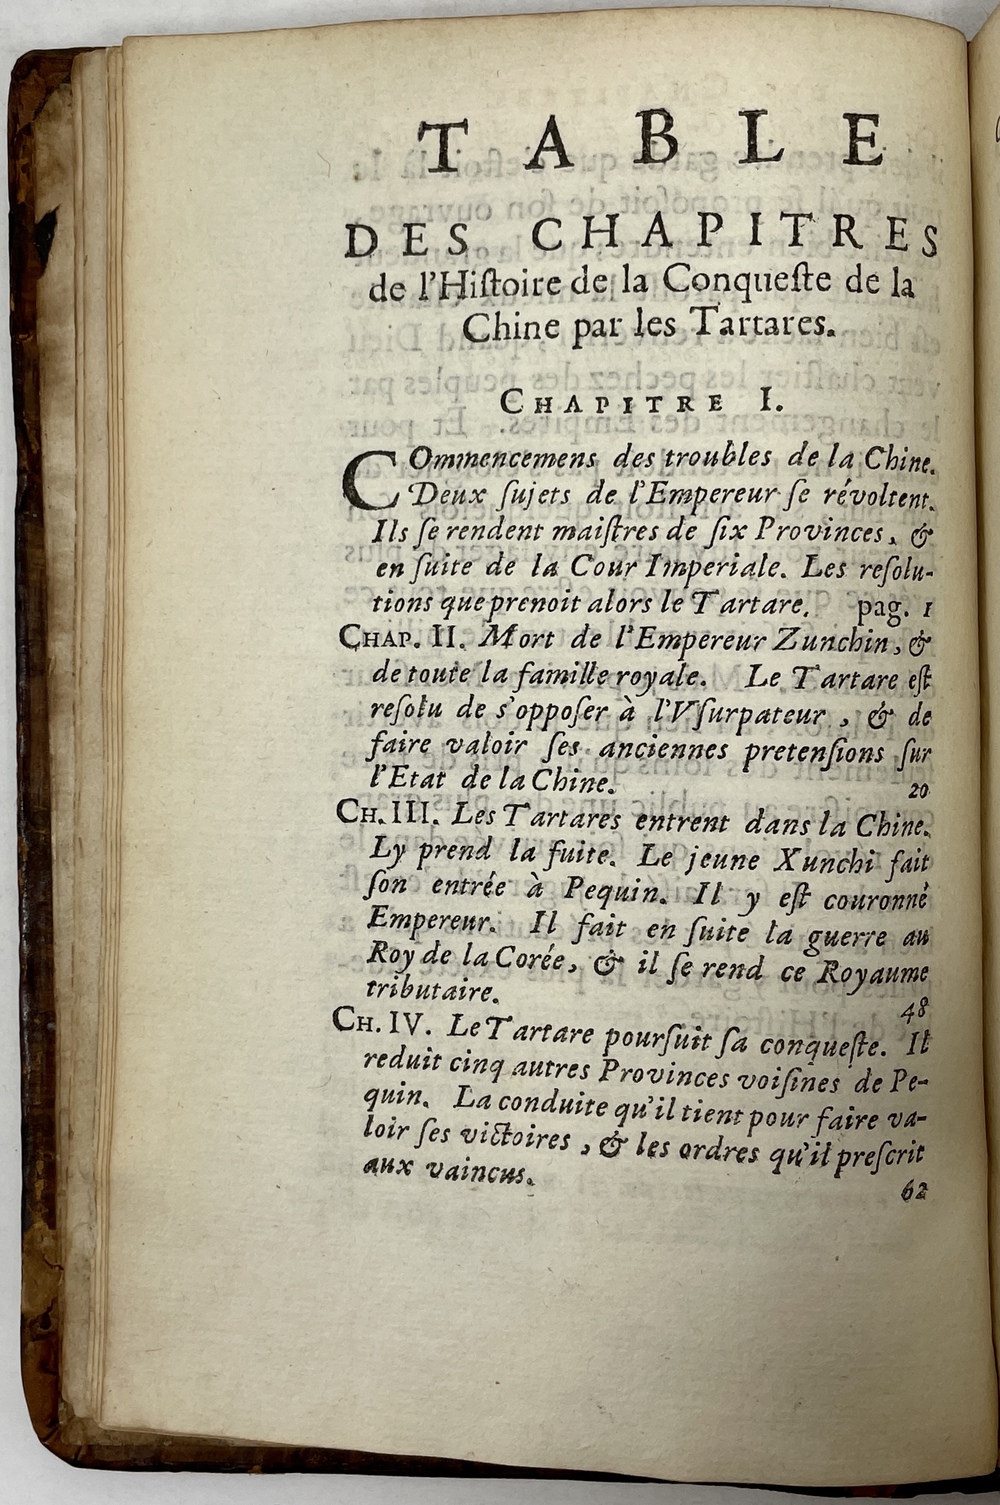 TABLE
DES CHAPITRES
de l'Hiſtoire de la Conqueſte de la
Chine par les Tartares.
CHAPITRE I.
COmmencemens des troubles de la Chine.
Deux ſujets de l'Empereur ſe révoltent.
Ils ſe rendent maiſtres de ſix Provinces, &
en ſuite de la Cour Imperiale. Les reſolu-
tions que prenoit alors le Tartare. pag. 1
CHAP. II. Mort de l'Empereur Zunchin, &
de toute la famille royale. Le Tartare eſt
reſolu de s'oppoſer à l'Vſurpateur, & de
faire valoir ſes anciennes pretenſions ſur
l'Etat de la Chine. 20
CH. III. Les Tartares entrent dans la Chine.
Ly prend la fuite. Le jeune Xunchi fait
ſon entrée à Pequin. Il y eſt couronné
Empereur. Il fait en ſuite la guerre au
Roy de la Corée, & il ſe rend ce Royaume
tributaire. 48
CH. IV. Le Tartare pourſuit ſa conqueſte. Il
reduit cinq autres Provinces voiſines de Pe-
quin. La conduite qu'il tient pour faire va-
loir ſes victoires, & les ordres qu'il preſcrit
aux vaincus. 62